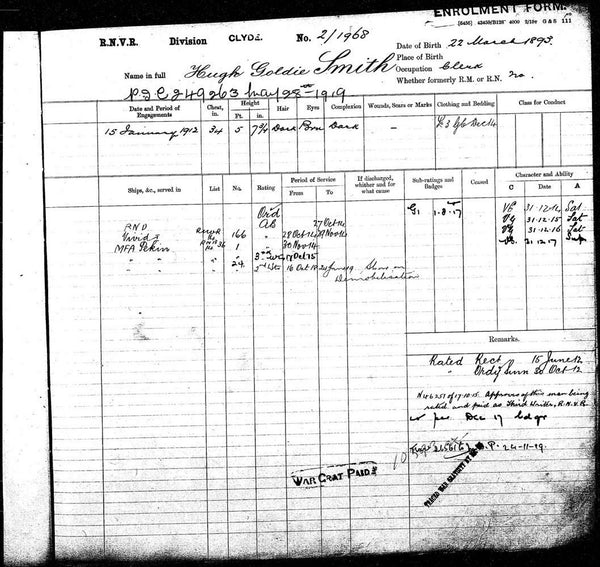 ENROLMENT FORM.
R.N.V.R. Division CLYDE. No. 2/1968
Date of Birth 22 March 1893
Place of Birth
Name in full Hugh Goldie Smith
Occupation Clerk
Whether formerly R.M. or R.N. no
May 28 1919
Date and Period of Engagements
Chest, in.
Height
Ft. in.
Hair
Eyes
Complexion
Wounds, Scars or Marks
Clothing and Bedding
Class for Conduct
15 January 1912 34 5 7¾ Dark Bro Dark —
Ships, &c., served in
List
No.
Rating
Period of Service
From To
If discharged, whither and for what cause
Sub-ratings and Badges
Ceased
Character and Ability
C Date A
Ord
RND AB 27 Oct 14
Vivid I 166 " 28 Oct 14 29 Nov 14
MFA Pekin 1 " 30 Nov 14
17 Oct 15
" 24 16 Oct 18 Shore on
Demobilisation
G1 1-8-17
VG 31-12-14 Sat
VG 31-12-15 Sat
VG 31-12-16 Sat
VG 31-12-17 Sup
Remarks.
Rated Rect 15 June 12
" Ordy 30 Oct 12
of 17-10-15 Approves of this man being
rated and paid as Third Writer, R.N.V.R.
Dec 17
24-11-19.
WAR GRAT PAID